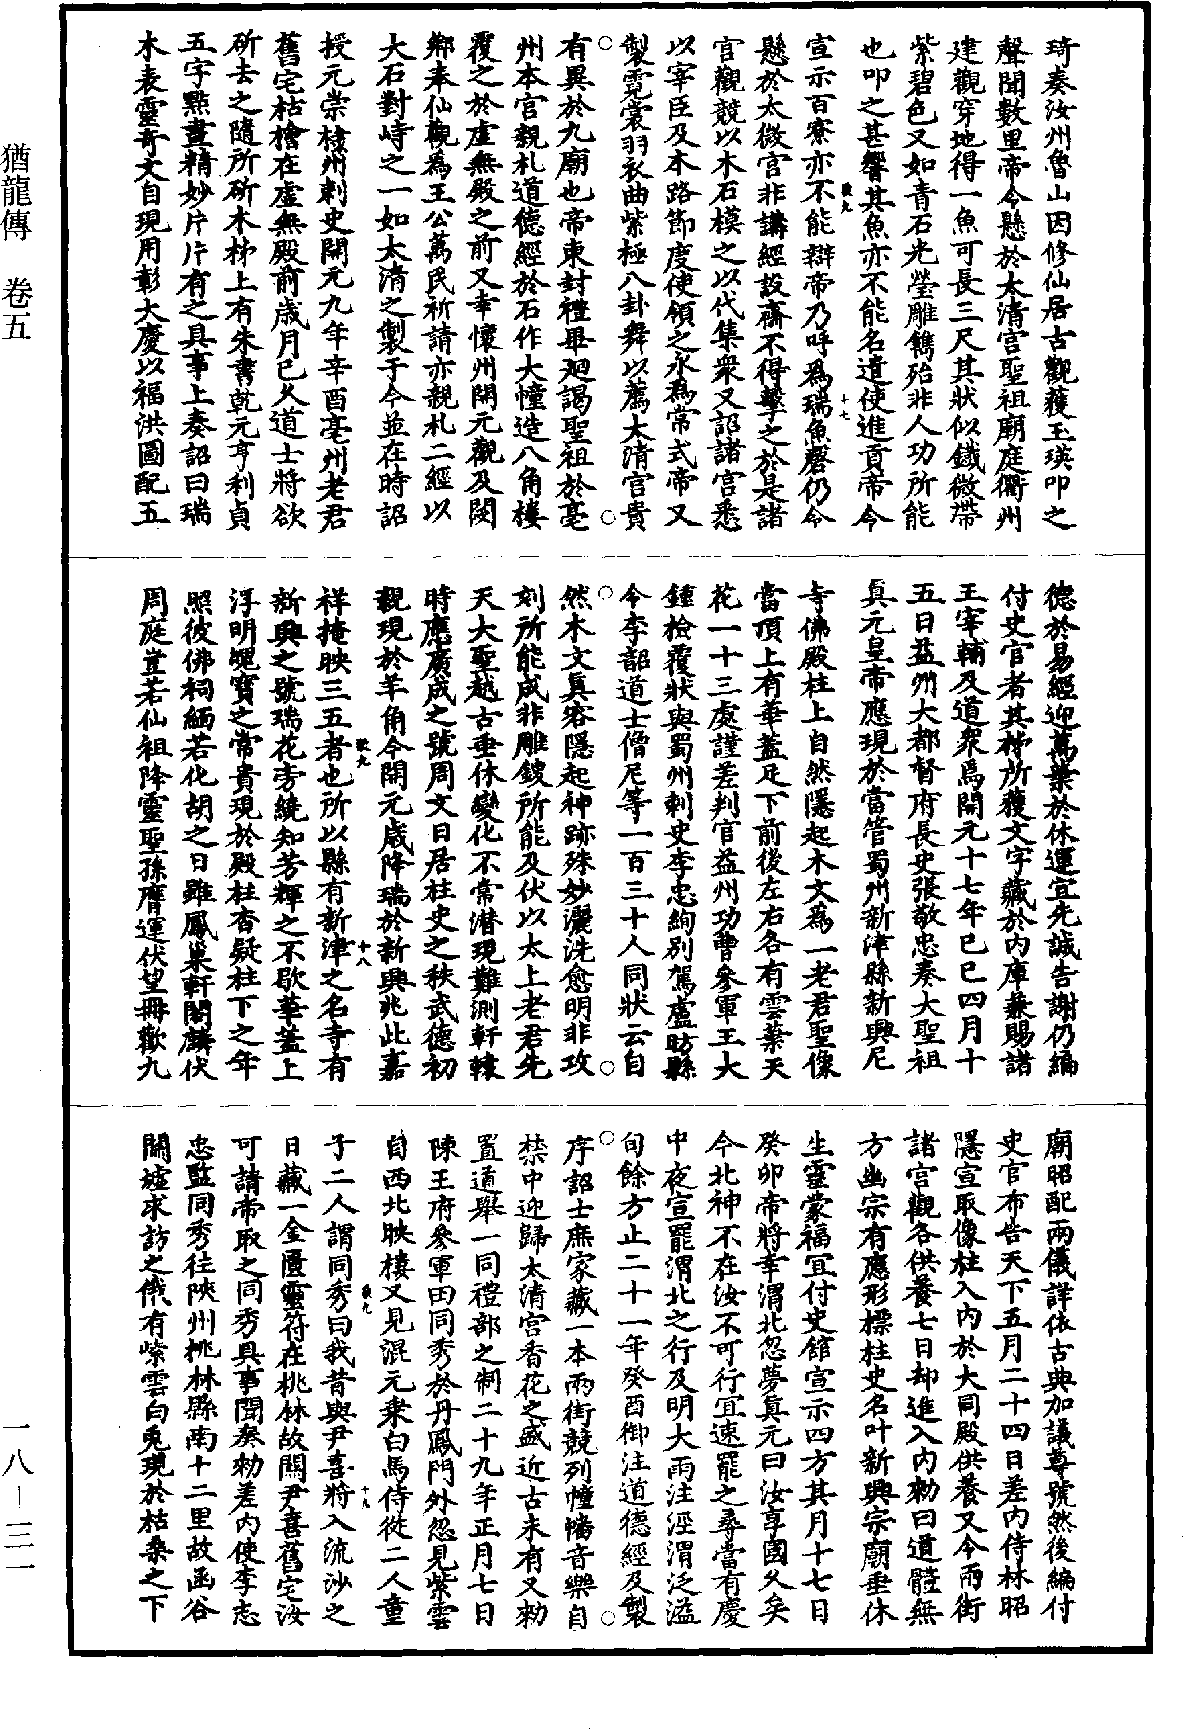 琦奏汝州魯山因修仙居古觀獲玉瑛叩之
聲聞數里帝令懸於太清宮聖祖廟庭衢州
建觀穿地得一魚可長三尺其狀似鐵微帶
紫碧色又如青石光瑩雕鐫殆非人功所能
也叩之甚響其魚亦不能名遣使進貢帝令
宣示百寮亦不能辯帝乃呼為瑞魚磬仍令
懸於太微宮非講經設齋不得擊之於是諸
宮觀競以木石模之以代集衆又詔諸宮悉
以宰臣及本路節度使領之永為常式帝又
製霓裳羽衣曲紫極八卦舞以薦太清宮貴
有異於九廟也帝東封禮畢迴謁聖祖於亳
州本宮親札道德經於石作大幢造八角樓
覆之於虛無殿之前又幸懷州開元觀及閿
鄉奉仙觀為王公萬民祈請亦親札二經以
大石對峙之一如太清之製于今並在時詔
授元崇棣州刺史開元九年辛酉亳州老君
舊宅枯檜在虛無殿前歲月已久道士將欲
斫去之隨所斫木柹上有朱書乾元亨利貞
五字點畫精妙片片有之具事上奏詔曰瑞
木表靈奇文自現用彰大慶以福洪圖配五
德於易經迎萬葉於休運宜先誠告謝仍編
付史官者其柹所獲文字藏於內庫兼賜諸
王宰輔及道衆焉開元十七年己巳四月十
五日益州大都督府長史張敬忠奏大聖祖
真元皇帝應現於當管蜀州新津縣新興尼
寺佛殿柱上自然隱起木文為一老君聖像
當頂上有華蓋足下前後左右各有雲葉天
花一十三處謹差判官益州功曹參軍王大
鍾檢覆狀與蜀州刺史李忠絢別駕盧昉縣
令李韶道士僧尼等一百三十人同狀云自
然木文真容隱起神跡殊妙灑洗愈明非攻
刻所能成非雕鏤所能及伏以太上老君先
天大聖越古垂休變化不常潛現難測軒轅
時應廣成之號周文日居柱史之秩武德初
親現於羊角今開元歲降瑞於新興兆此嘉
祥掩映三五者也所以縣有新津之名寺有
新興之號瑞花旁繞知芳輝之不歇華蓋上
浮明媿寶之常貴現於殿柱杳疑柱下之年
照彼佛祠緬若化胡之日雖鳳巢軒閣麟伏
周庭豈若仙祖降靈聖孫膺運伏望冊歡九
廟昭配兩儀詳依古典加議尊號然後編付
史官布告天下五月二十四日差內侍林昭
隱宣取像柱入內於大同殿供養又令兩街
諸宮觀各供養七日却進入內勑曰道體無
方幽宗有應形標柱史名叶新興宗廟垂休
生靈蒙福宜付史館宣示四方其月十七日
癸卯帝將幸渭北忽夢真元曰汝享國久矣
今北神不在汝不可行宜速罷之尋當有慶
中夜宣罷渭北之行及明大雨注涇渭泛溢
旬餘方止二十一年癸酉御注道德經及製
序詔士庶家藏一本兩街競列幢幡音樂自
禁中迎歸太清宮香花之盛近古未有又勑
置道舉一同禮部之制二十九年正月七日
陳王府參軍田同秀於丹鳳門外忽見紫雲
自西北映樓又見混元乘白馬侍從二人童
子二人謂同秀曰我昔與尹喜將入流沙之
日藏一金匱靈符在桃林故關尹喜舊宅汝
可請帝取之同秀具事聞奏勑差內使李志
忠監同秀往陝州桃林縣南十二里故函谷
關墟求訪之俄有紫雲白兎現於枯桑之下
猶龍傳 卷五
一八—三一